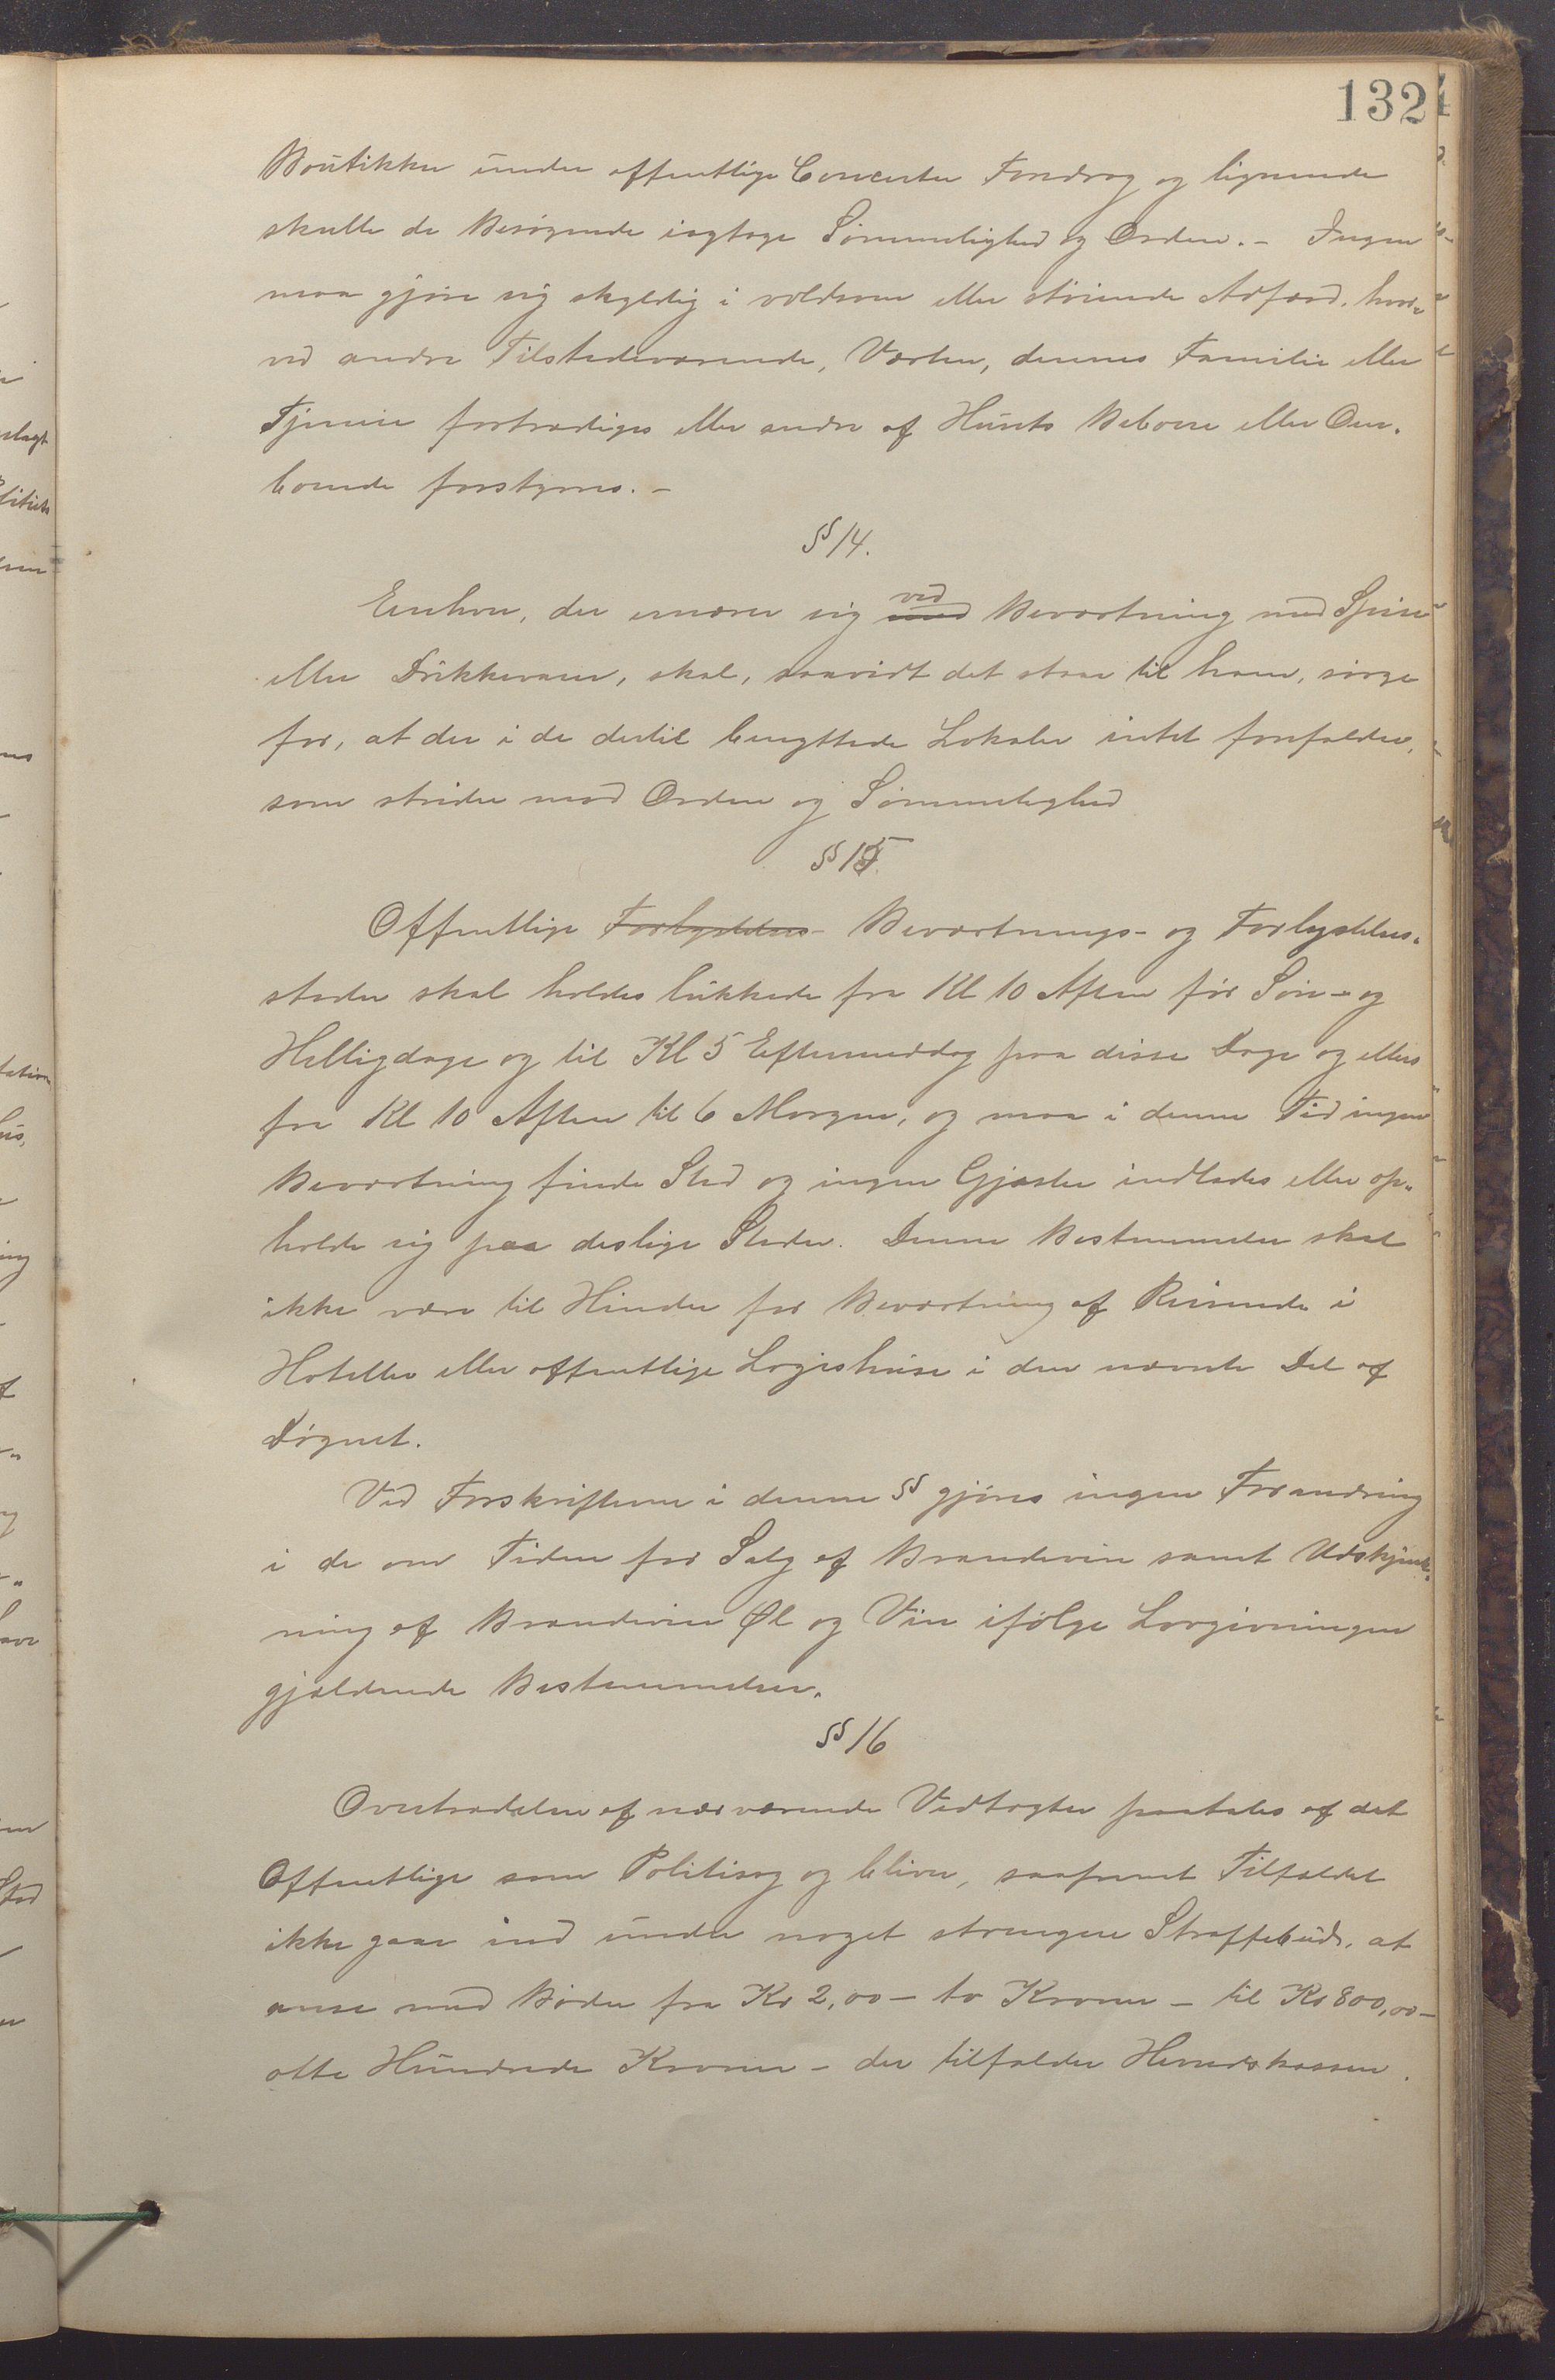 132
Boutikker under offentlige Concerter Foredrag og lignende
skulle de Besøgende iagtage Sømmelighed og Orden. - Ingen
maa gjøre sig skyldig i voldsom eller støiende Adfærd, hvor-
ved andre Tilstedeværende, Værten, dennes Familie eller
Tjenere fortrædiges eller andre af Husets Beboere eller Om-
boende forstyrres. -
§ 14.
Enhver, der ernærer sig med ved Beværtning med Spise
eller Drikkevarer, skal, saavidt det staar til ham, sørge
for, at der i de dertil benyttede Lokaler intet forefalder,
som strider mod Orden og Sømmelighed
§ 15.
Offentlige Forlystelses- Beværtnings- og Forlystelses-
steder skal holdes lukkede fra Kl 10 Aften før Søn- og
Helligdage og til Kl 5 Eftermiddag paa disse Dage og ellers
fra Kl 10 Aften til 6 Morgen, og maa i denne Tid ingen
Beværtning finde Sted og ingen Gjæster indlades eller op-
holde sig paa deslige Steder. Denne Bestemmelse skal
ikke være til Hinder for Beværtning af Reisende i
Hoteller eller offentlige Logishuse i den nævnte Del af
Døgnet.
Ved Forskrifterne i denne § gjøres ingen Forandring
i de om Tiden for Salg af Brændevin samt Udskjænk-
ning af Brændevin Øl og Vin ifølge Lovgivningen
gjældende Bestemmelser.
§ 16
Overtrædelse af nærværende Vedtægter paatales af det
Offentlige som Politisag og bliver, saafremt Tilfældet
ikke gaar ind under noget strengere Straffebud, at
anse med Bøder fra Kr 2,00 - to Kroner - til Kr 800,00 -
otte Hundrede Kroner - der tilfalder Herredskassen.